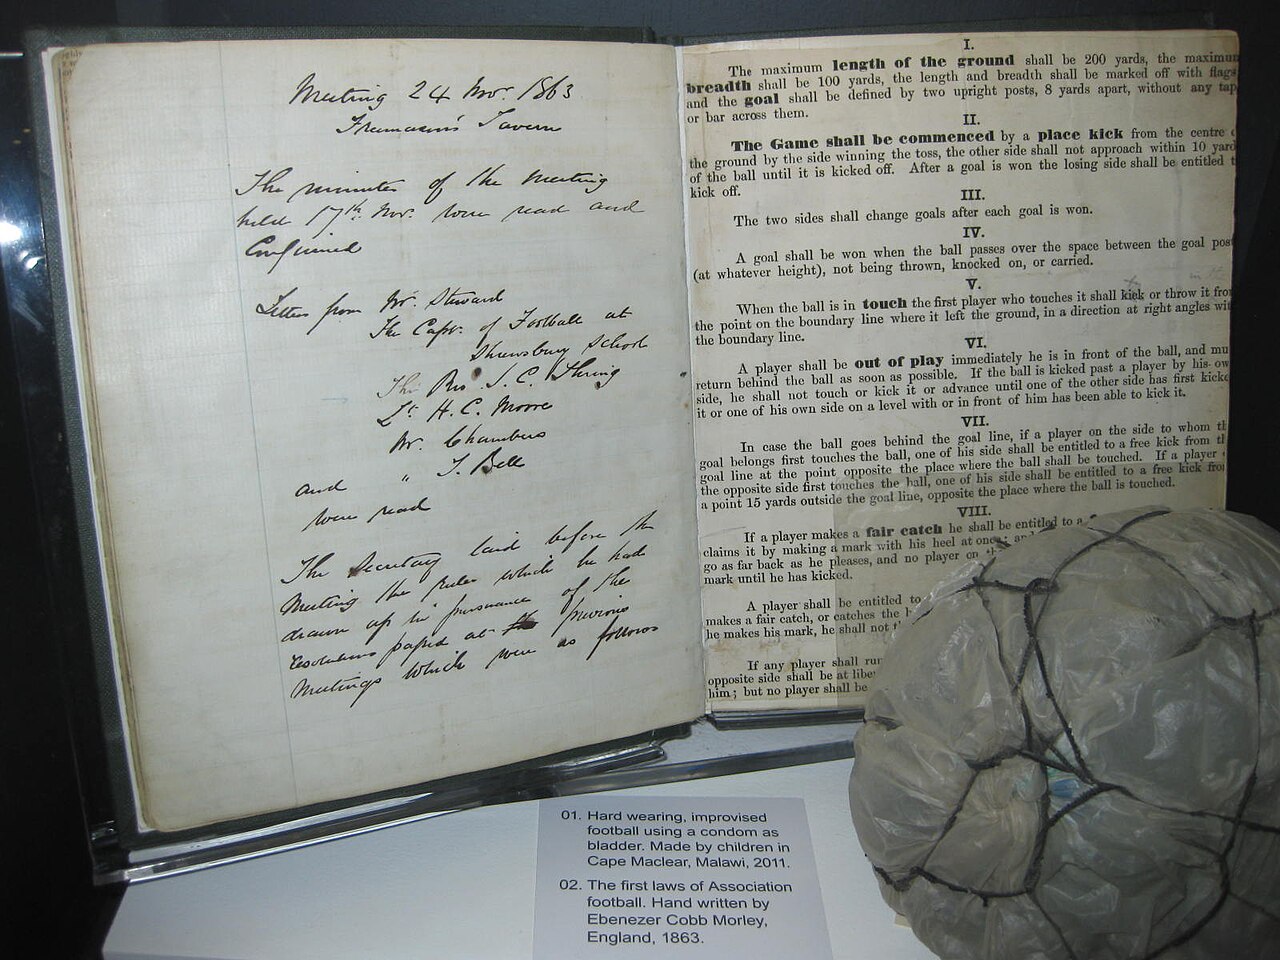 Meeting 24 Nov. 1863
Freemason's Tavern
The minutes of the Meeting
held 17th Nov. were read and
Confirmed
Letters from Mr. Steward
The Captn. of Football at
Shrewsbury School
The Rev. J. C. Thring
Lt. H. C. Moore
Mr. Chambers
and " J. Bell
were read
The Secretary laid before the
Meeting the Rules which he had
drawn up in pursuance of the
resolutions passed at the previous
Meetings which were as follows
I.
The maximum length of the ground shall be 200 yards, the maximum
breadth shall be 100 yards, the length and breadth shall be marked off with flags
and the goal shall be defined by two upright posts, 8 yards apart, without any tap
or bar across them.
II.
The Game shall be commenced by a place kick from the centre
the ground by the side winning the toss, the other side shall not approach within 10 yard
of the ball until it is kicked off. After a goal is won the losing side shall be entitled t
kick off.
III.
The two sides shall change goals after each goal is won.
IV.
A goal shall be won when the ball passes over the space between the goal post
(at whatever height), not being thrown, knocked on, or carried.
V.
When the ball is in touch the first player who touches it shall kick or throw it from
the point on the boundary line where it left the ground, in a direction at right angles wit
the boundary line.
VI.
A player shall be out of play immediately he is in front of the ball, and mu
return behind the ball as soon as possible. If the ball is kicked past a player by his ow
side, he shall not touch or kick it or advance until one of the other side has first kicke
it or one of his own side on a level with or in front of him has been able to kick it.
VII.
In case the ball goes behind the goal line, if a player on the side to whom th
goal belongs first touches the ball, one of his side shall be entitled to a free kick from th
goal line at the point opposite the place where the ball shall be touched. If a player
the opposite side first touches the ball, one of his side shall be entitled to a free kick from
a point 15 yards outside the goal line, opposite the place where the ball is touched.
VIII.
If a player makes a fair catch he shall be entitled to a
claims it by making a mark with his heel at once; and
go as far back as he pleases, and no player on th
mark until he has kicked.
A player shall be entitled to
makes a fair catch, or catches the b
he makes his mark, he shall not
If any player shall run
opposite side shall be at liber
him; but no player shall be
01. Hard wearing, improvised
football using a condom as
bladder. Made by children in
Cape Maclear, Malawi, 2011.
02. The first laws of Association
football. Hand written by
Ebenezer Cobb Morley,
England, 1863.